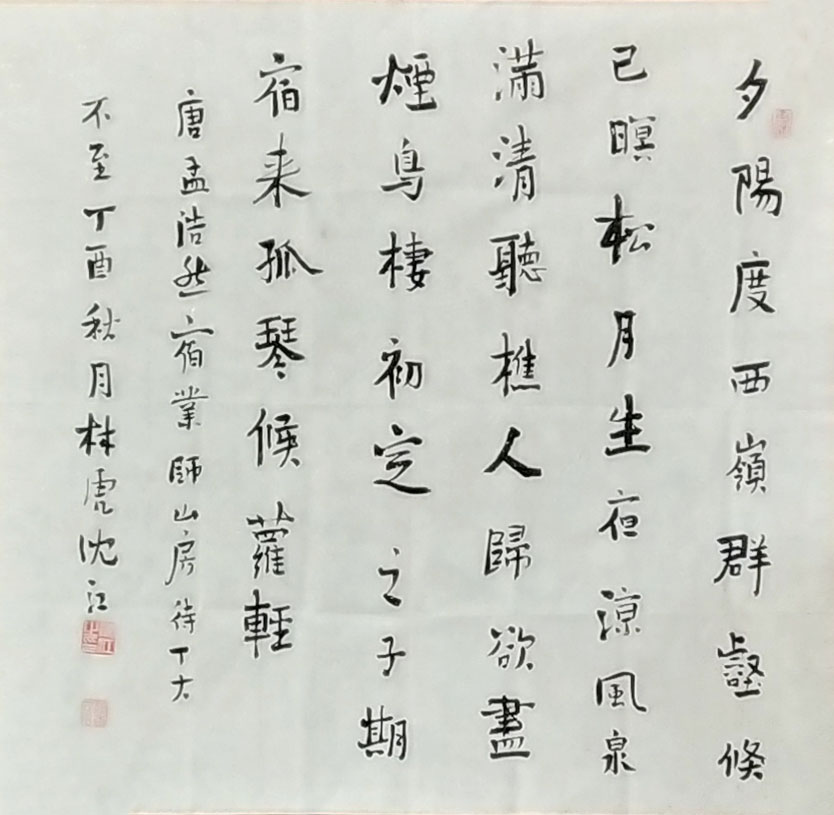 夕陽度西嶺群壑倏
已暝松月生夜涼風泉
滿清聽樵人歸欲盡
煙鳥棲初定之子期
宿来孤琴候蘿輕
唐孟浩然宿業師山房待丁大
不至丁酉秋月林虎沈江